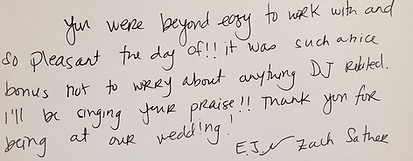 You were beyond easy to work with and
so pleasant the day of!! it was such a nice
bonus not to worry about anything DJ related.
I'll be singing your praise!! Thank you for
being at our wedding!
E.J. ~ Zach Sather